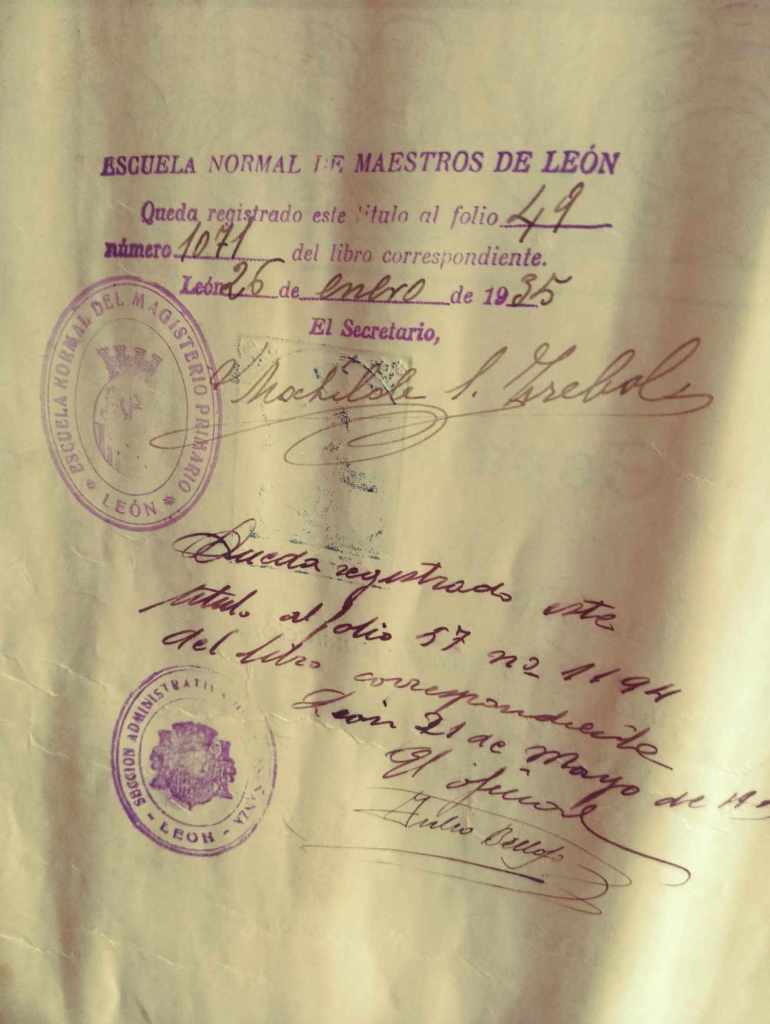 ESCUELA NORMAL DE MAESTROS DE LEÓN
Queda registrado este título al folio 49
número 1071 del libro correspondiente.
León 26 de enero de 1935
El Secretario,
ESCUELA NORMAL DEL MAGISTERIO PRIMARIO
* LEÓN *
Queda registrado este
título al folio 57 nº 1194
del libro correspondiente
León 21 de Mayo de 19
El oficial
Julio
SECCION ADMINISTRATIV
- LEON -